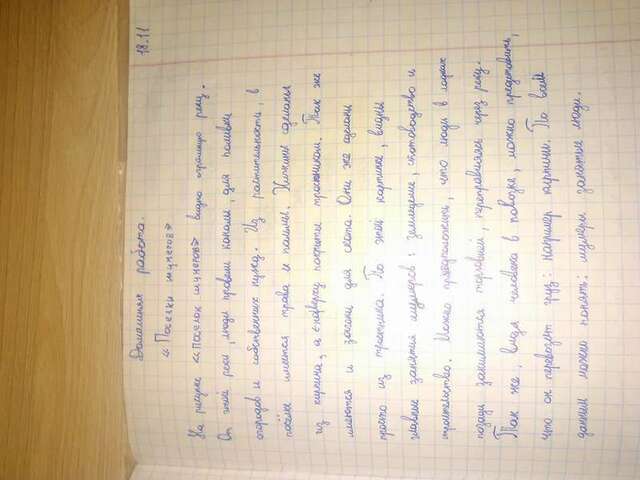 18.11
Домашняя работа.
« Поселки шумеров»
На рисунке «Поселок шумеров» видно огромную реку.
От этой реки, люди провели каналы, для поливки
огородов и собственных нужд. Из растительности, в
посёлке имеется трава и пальмы. Хижины сделаны
из кирпича, а с наверху покрыты тростником. Так же
имеются и загоны для скота. Они же сделаны
просто из тростника. По этой картинке, видны
главные занятия шумеров: земледелие, скотоводство и
строительство. Можно предположить, что люди в лодках
позади занимаются торговлей, переправляясь через реку.
Так же, видя человека в повозке, можно представить,
что он перевозит груз: Например кирпичи. По всем
данным можно понять: шумеры занятые люди.